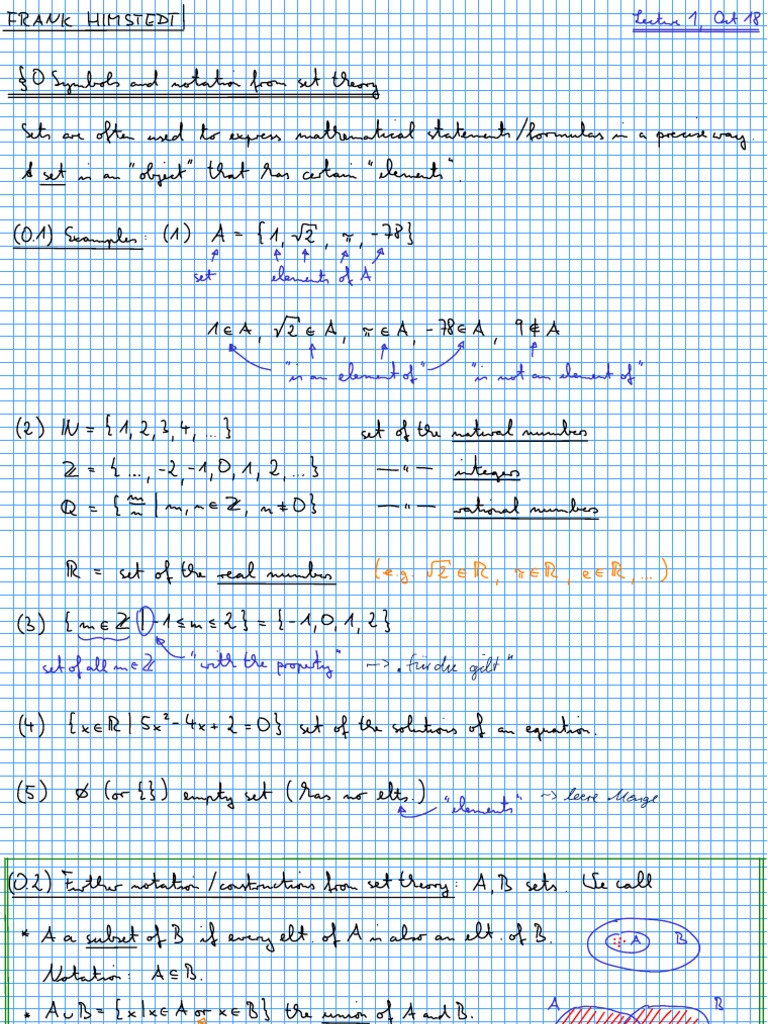 FRANK HIMSTEDT
Lecture 1, Oct 18
§0 Symbols and notation from set theory
Sets are often used to express mathematical statements/formulas in a precise way.
A set is an "object" that has certain "elements".
(0.1) Examples: (1) A = {1, √2, π, -78}
set elements of A
1 ∈ A, √2 ∈ A, π ∈ A, -78 ∈ A, 9 ∉ A
"is an element of" "is not an element of"
(2) ℕ = {1, 2, 3, 4, ...} set of the natural numbers
ℤ = {..., -2, -1, 0, 1, 2, ...} —"— integers
ℚ = {m/n | m, n ∈ ℤ, n ≠ 0} —"— rational numbers
ℝ = set of the real numbers (e.g. √2 ∈ ℝ, π ∈ ℝ, e ∈ ℝ, ...)
(3) {m ∈ ℤ | -1 ≤ m ≤ 2} = {-1, 0, 1, 2}
set of all m ∈ ℤ "with the property" -> "für die gilt"
(4) {x ∈ ℝ | 5x² - 4x + 2 = 0} set of the solutions of an equation.
(5) ∅ (or {}) empty set (has no elts.) "elements" -> leere Menge
(0.2) Further notation/constructions from set theory: A, B sets. We call
* A a subset of B if every elt. of A is also an elt. of B. A B
Notation: A ⊆ B.
* A ∪ B = {x | x ∈ A or x ∈ B} the union of A and B. A B